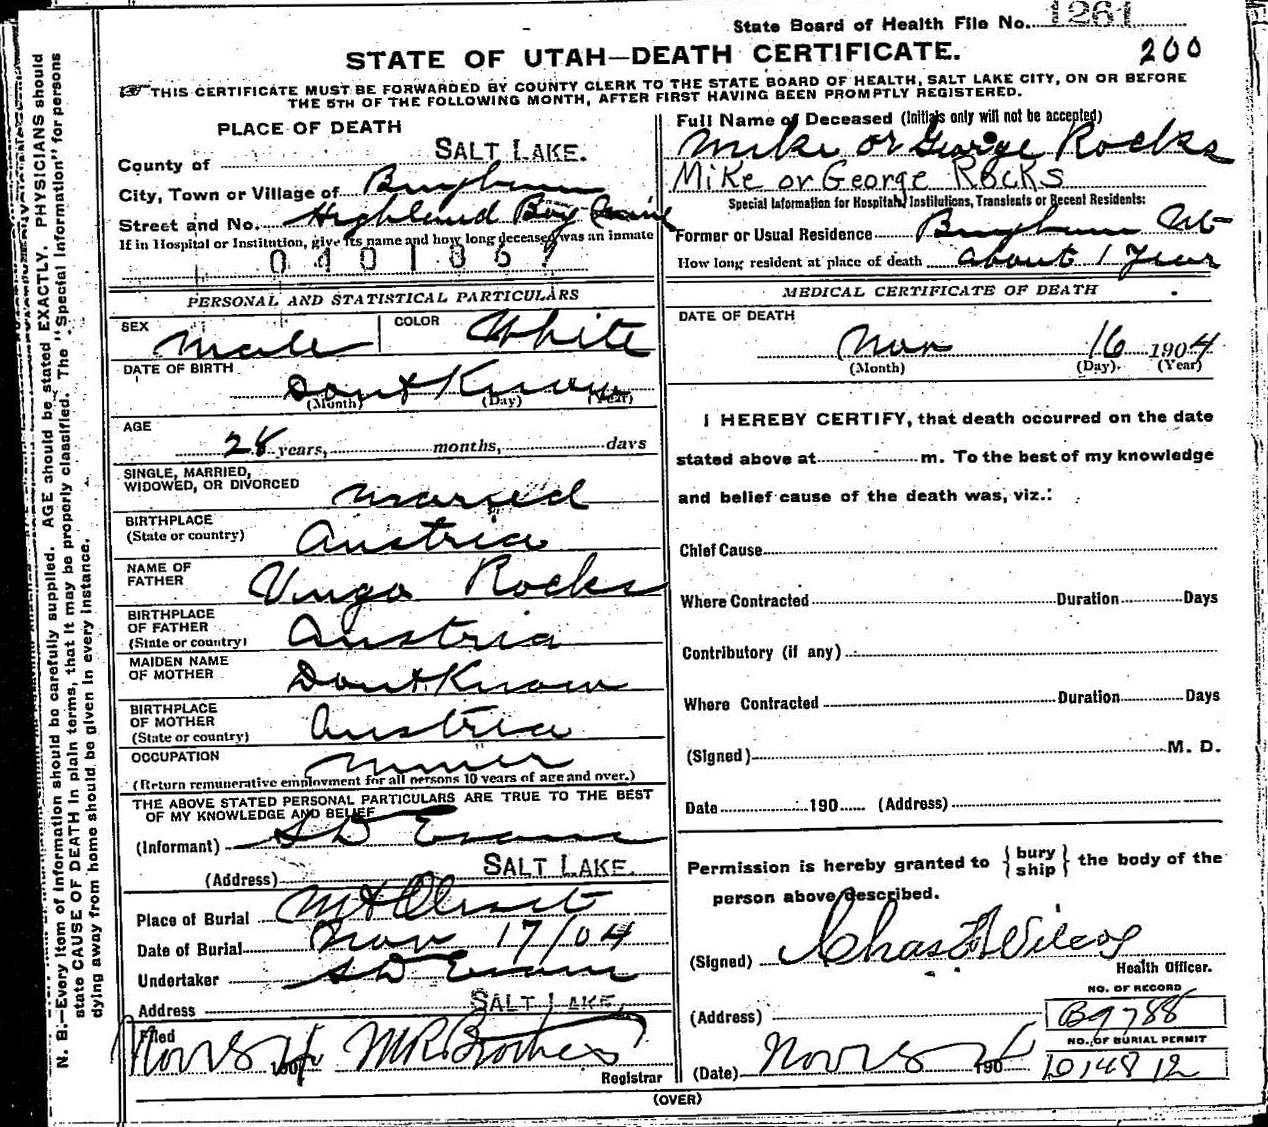 State Board of Health File No. 1261
STATE OF UTAH—DEATH CERTIFICATE.
200
THIS CERTIFICATE MUST BE FORWARDED BY COUNTY CLERK TO THE STATE BOARD OF HEALTH, SALT LAKE CITY, ON OR BEFORE
THE 5TH OF THE FOLLOWING MONTH, AFTER FIRST HAVING BEEN PROMPTLY REGISTERED.
N. B.—Every item of information should be carefully supplied. AGE should be stated EXACTLY. PHYSICIANS should
state CAUSE OF DEATH in plain terms, that it may be properly classified. The "Special Information" for persons
dying away from home should be given in every instance.
PLACE OF DEATH
County of SALT LAKE.
City, Town or Village of Bingham
Street and No. Highland Boy Mine
If in Hospital or Institution, give its name and how long deceased was an inmate
0401867
PERSONAL AND STATISTICAL PARTICULARS
SEX Male COLOR White
DATE OF BIRTH
Dont Know
(Month) (Day) (Year)
AGE
28 years, months, days
SINGLE, MARRIED,
WIDOWED, OR DIVORCED Married
BIRTHPLACE
(State or country) Austria
NAME OF
FATHER Rocks
BIRTHPLACE
OF FATHER
(State or country) Austria
MAIDEN NAME
OF MOTHER Dont Know
BIRTHPLACE
OF MOTHER
(State or country) Austria
OCCUPATION Miner
(Return remunerative employment for all persons 10 years of age and over.)
THE ABOVE STATED PERSONAL PARTICULARS ARE TRUE TO THE BEST
OF MY KNOWLEDGE AND BELIEF
(Informant) S D Evans
(Address) SALT LAKE.
Place of Burial Mt Olivet
Date of Burial Nov 17/04
Undertaker S D Evans
Address SALT LAKE.
Filed Nov 190
Registrar
Full Name of Deceased (Initials only will not be accepted)
Mike or George Rocks
Mike or George Rocks
Special Information for Hospitals, Institutions, Transients or Recent Residents:
Former or Usual Residence Bingham Ut
How long resident at place of death about 1 Year
MEDICAL CERTIFICATE OF DEATH
DATE OF DEATH
Nov 16 1904
(Month) (Day). (Year)
I HEREBY CERTIFY, that death occurred on the date
stated above at m. To the best of my knowledge
and belief cause of the death was, viz.:
Chief Cause
Where Contracted Duration Days
Contributory (if any)
Where Contracted Duration Days
(Signed) M. D.
Date 190 (Address)
Permission is hereby granted to {bury
ship} the body of the
person above described.
(Signed) Chas F Wilcox
Health Officer.
(Address)
NO. OF RECORD
B9788
NO. OF BURIAL PERMIT
(Date) Nov 190
(OVER)